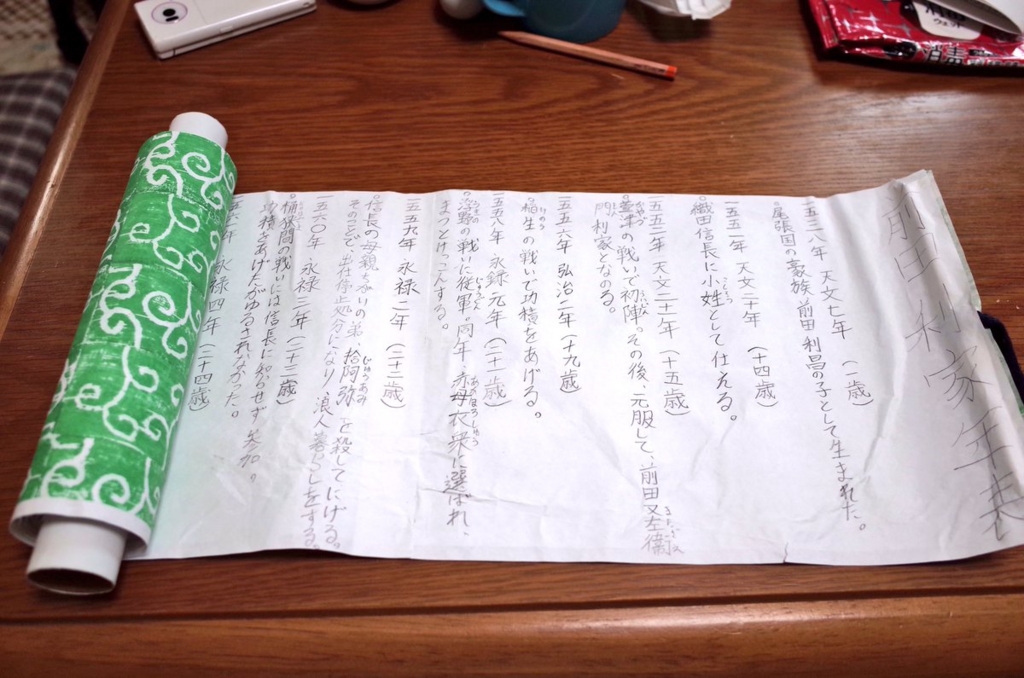 前田利家年表
一五三八年 天文七年 (一歳)
。尾張国の豪族、前田利昌の子として生まれた。
一五五一年 天文二十年 (十四歳)
。織田信長に小姓として仕える。
一五五二年 天文二十一年 (十五歳)
。萱津の戦いで初陣。その後、元服して、前田又左衛
門利家となのる。
一五五六年 弘治二年 (十九歳)
。稲生の戦いで功積をあげる。
一五五八年 永録元年 (二十一歳)
。浮野の戦いに従軍。同年、赤母衣衆に選ばれ、
まつとけっこんする。
一五五九年 永禄二年 (二十二歳)
。信長の母親ゆかりの弟、拾阿弥を殺してにげる。
そのことで、出仕停止処分になり、浪人暮らしをする。
一五六〇年 永禄三年 (二十三歳)
。桶狭間の戦いには信長に知らせず参加。
功積をあげたがゆるされなかった。
永禄四年 (二十四歳)
消毒